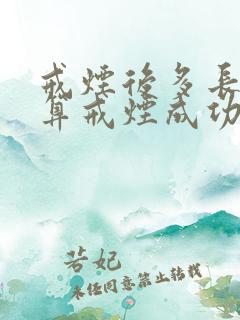 戒煙後多長
算戒煙成功
若妃
未经同意禁止转载